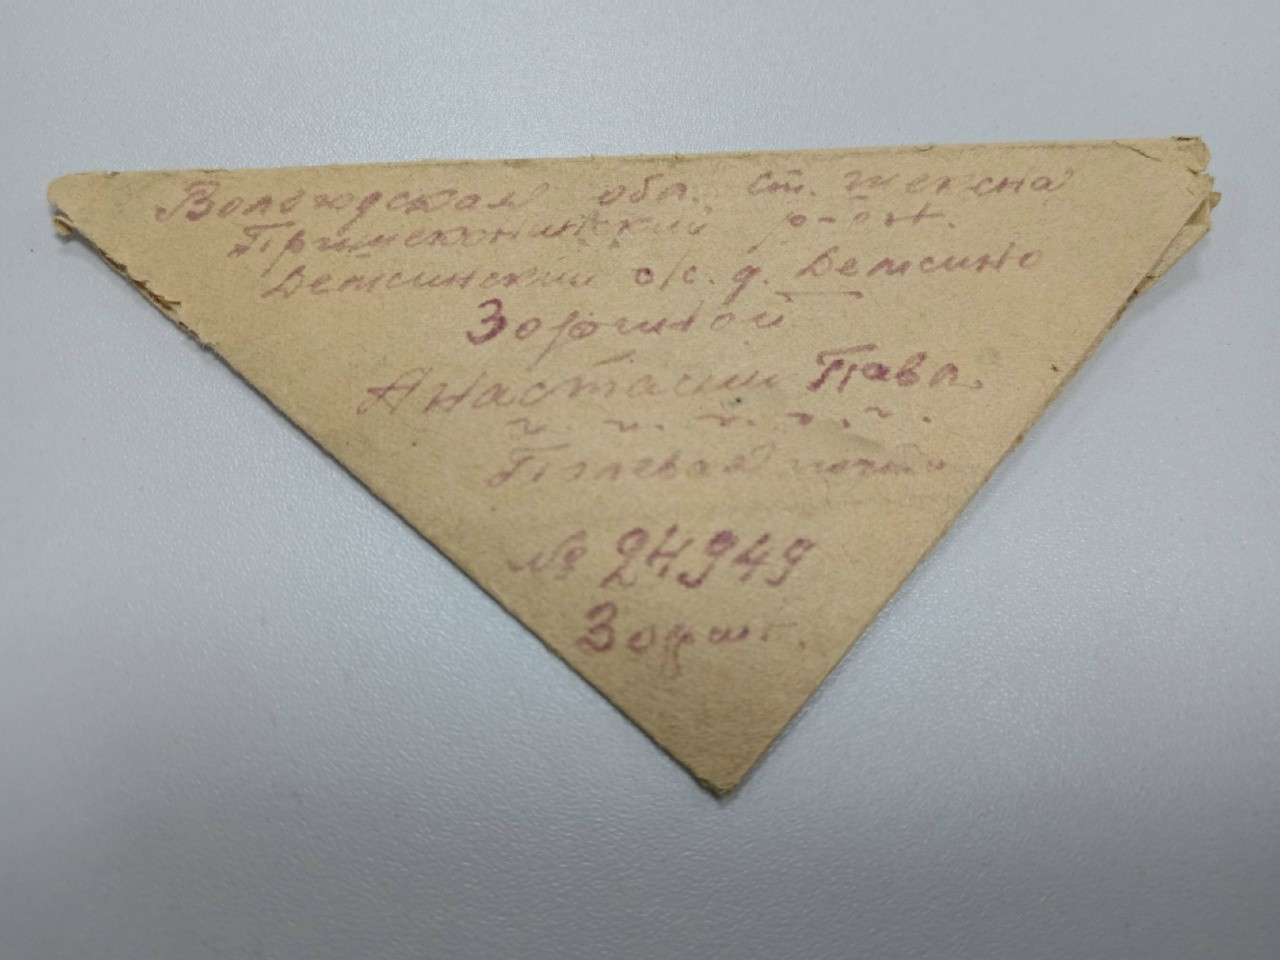 Вологодская обл. ст. Шексна
Пришекснинский р-он.
Демсинский с/с. д. Демсино
Зориной
Анастасии Павл.
Полевая почта
№ 24949
Зорин